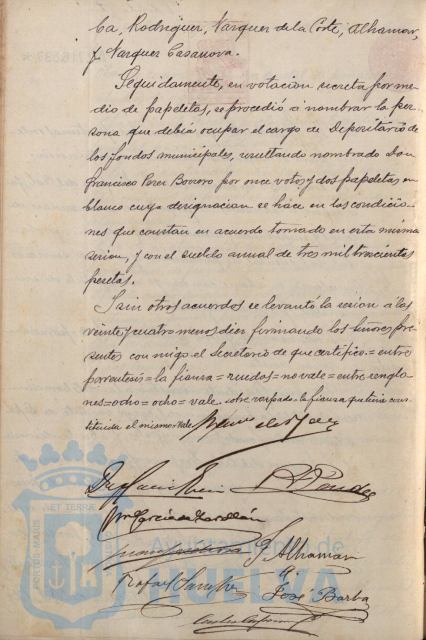 ba, Rodriguez, Vazquez de la Corte, Alhaman,
y Vazquez Casanova.
Seguidamente, en votacion secreta por me
dio de papeletas, se procedió á nombrar la per
sona que debia ocupar el cargo de Depositario de
los fondos municipales, resultando nombrado Don
Francisco Perez Borrero por once votos y dos papeletas en
blanco cuya designacion se hace en las condicio
nes que constan en acuerdo tomado en esta misma
sesion, y con el sueldo anual de tres mil trescientas
pesetas.
Y sin otros acuerdos se levantó la sesion á las
veinte y cuatro menos diez firmando los Señores pre
sentes conmigo el Secretario de que certifico.= entre
parentesis = la fianza = ruedos = no vale = entre renglo
nes = ocho = ocho = vale. sobre raspado = la fianza que tiene cons
tituida el mismo = Vale
J. Alhaman
Rafael
José Barba
PORTUS MARIS ET TERRÆ
Ayuntamiento de
HUELVA